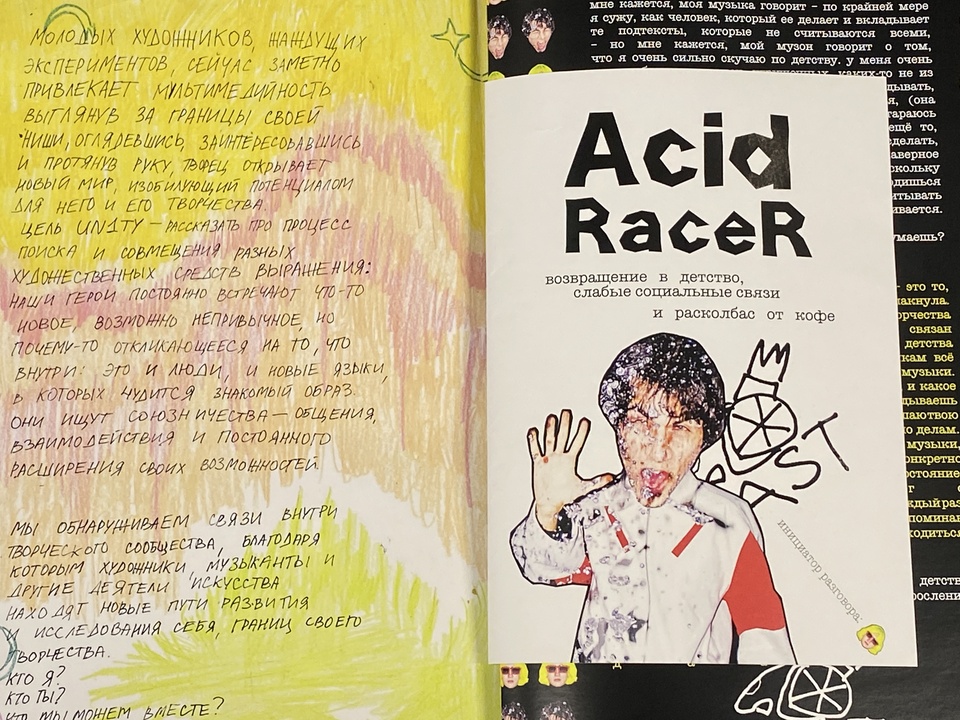 МОЛОДЫХ ХУДОЖНИКОВ, ЖАЖДУЩИХ
ЭКСПЕРИМЕНТОВ, СЕЙЧАС ЗАМЕТНО
ПРИВЛЕКАЕТ МУЛЬТИМЕДИЙНОСТЬ
ВЫГЛЯНУВ ЗА ГРАНИЦЫ СВОЕЙ
НИШИ, ОГЛЯДЕВШИСЬ, ЗАИНТЕРЕСОВАВШИСЬ
И ПРОТЯНУВ РУКУ, ТВОРЕЦ ОТКРЫВАЕТ
НОВЫЙ МИР, ИЗОБИЛУЮЩИЙ ПОТЕНЦИАЛОМ
ДЛЯ НЕГО И ЕГО ТВОРЧЕСТВА.
ЦЕЛЬ UNITY – РАССКАЗАТЬ ПРО ПРОЦЕСС
ПОИСКА И СОВМЕЩЕНИЯ РАЗНЫХ
ХУДОЖЕСТВЕННЫХ СРЕДСТВ ВЫРАЖЕНИЯ:
НАШИ ГЕРОИ ПОСТОЯННО ВСТРЕЧАЮТ ЧТО-ТО
НОВОЕ, ВОЗМОЖНО НЕПРИВЫЧНОЕ, НО
ПОЧЕМУ-ТО ОТКЛИКАЮЩЕЕСЯ НА ТО, ЧТО
ВНУТРИ: ЭТО И ЛЮДИ, И НОВЫЕ ЯЗЫКИ,
В КОТОРЫХ ЧУДИТСЯ ЗНАКОМЫЙ ОБРАЗ.
ОНИ ИЩУТ СОЮЗНИЧЕСТВА – ОБЩЕНИЯ,
ВЗАИМОДЕЙСТВИЯ И ПОСТОЯННОГО
РАСШИРЕНИЯ СВОИХ ВОЗМОЖНОСТЕЙ.
МЫ ОБНАРУЖИВАЕМ СВЯЗИ ВНУТРИ
ТВОРЧЕСКОГО СООБЩЕСТВА, БЛАГОДАРЯ
КОТОРЫМ ХУДОЖНИКИ, МУЗЫКАНТЫ И
ДРУГИЕ ДЕЯТЕЛИ ИСКУССТВА
НАХОДЯТ НОВЫЕ ПУТИ РАЗВИТИЯ
И ИССЛЕДОВАНИЯ СЕБЯ, ГРАНИЦ СВОЕГО
ТВОРЧЕСТВА.
КТО Я?
КТО ТЫ?
ЧТО МЫ МОЖЕМ ВМЕСТЕ?
мне кажется, моя музыка говорит - по крайней мере
я сужу, как человек, который ее делает и вкладывает
те подтексты, которые не считываются всеми,
- но мне кажется, мой музон говорит о том,
что я очень сильно скучаю по детству. у меня очень
каких-то не из
Acid
RaceR
возвращение в детство,
слабые социальные связи
и расколбас от кофе
инициатор разговора:
я, (она
ещё то,
- это то,
связан
детства
кам всё
музыки.
и какое
о делам.
музыки,